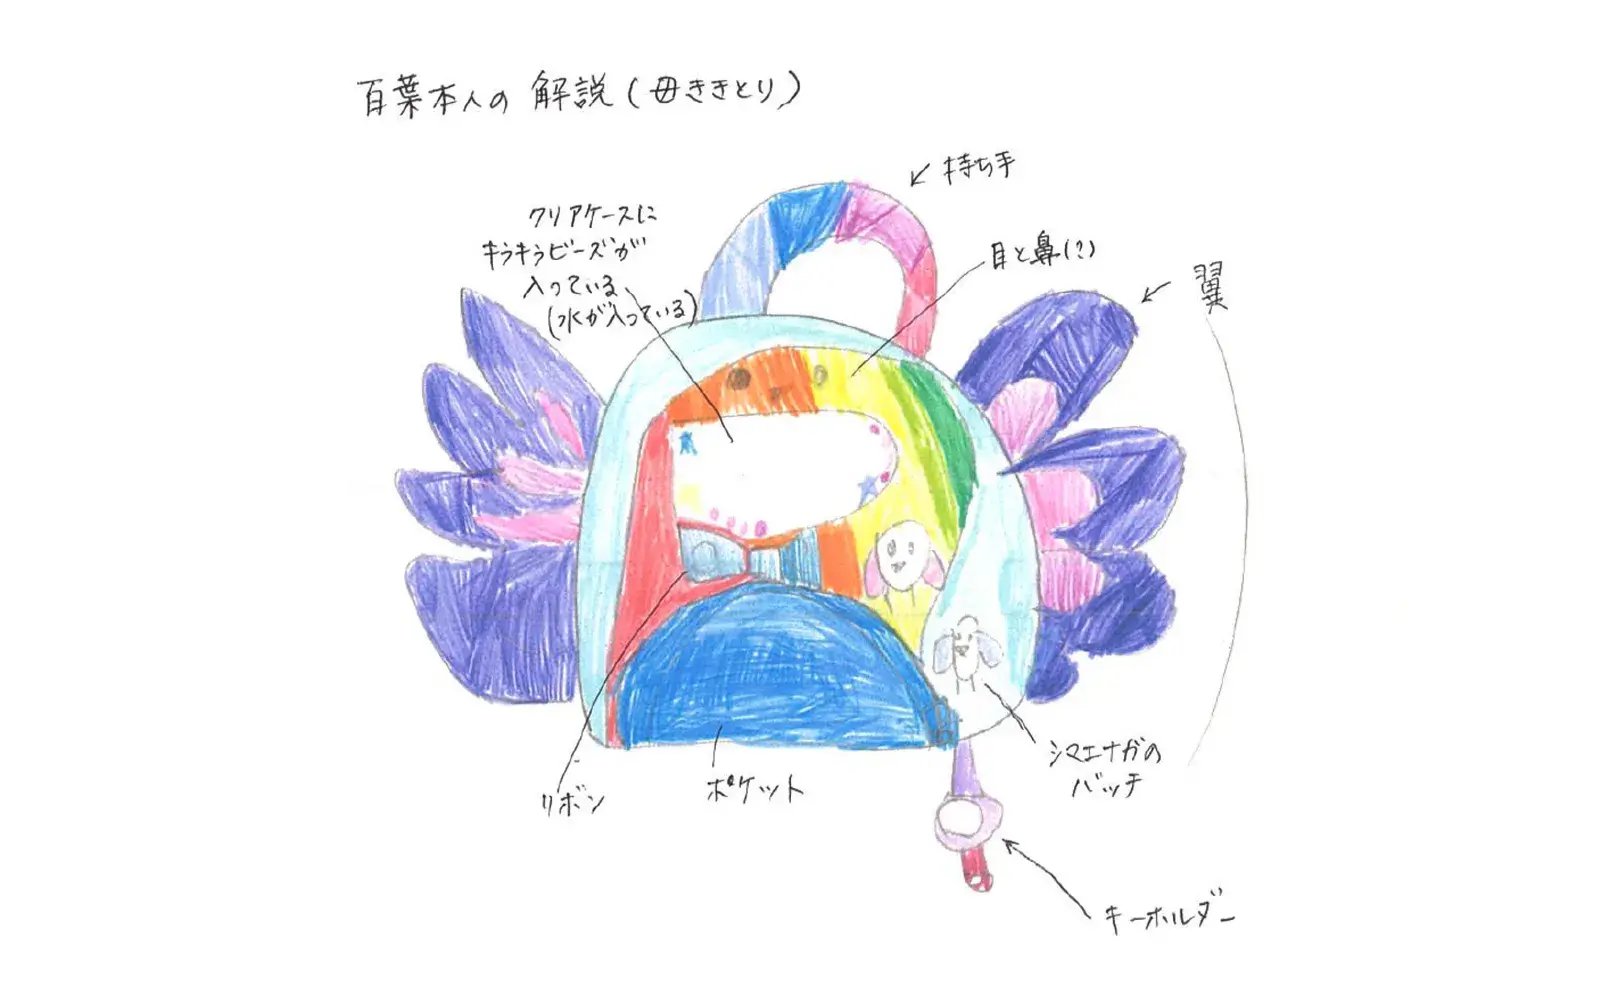 百葉本人の 解説(母ききとり)
持ち手
クリアケースに
キラキラビーズが
入っている
(水が入っている)
目と鼻(?)
翼
シマエナガの
バッチ
リボン
ポケット
キーホルダー